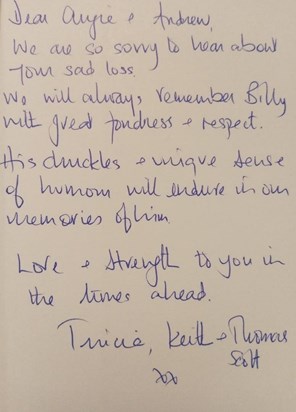 Dear Angie & Andrew,
We are so sorry to hear about
your sad loss.
We will always remember Billy
with great fondness & respect.
His chuckles & unique sense
of humour will endure in our
memories of him
Love & Strength to you in
the times ahead.
Tricia, Keith & Thomas
Scott
xox